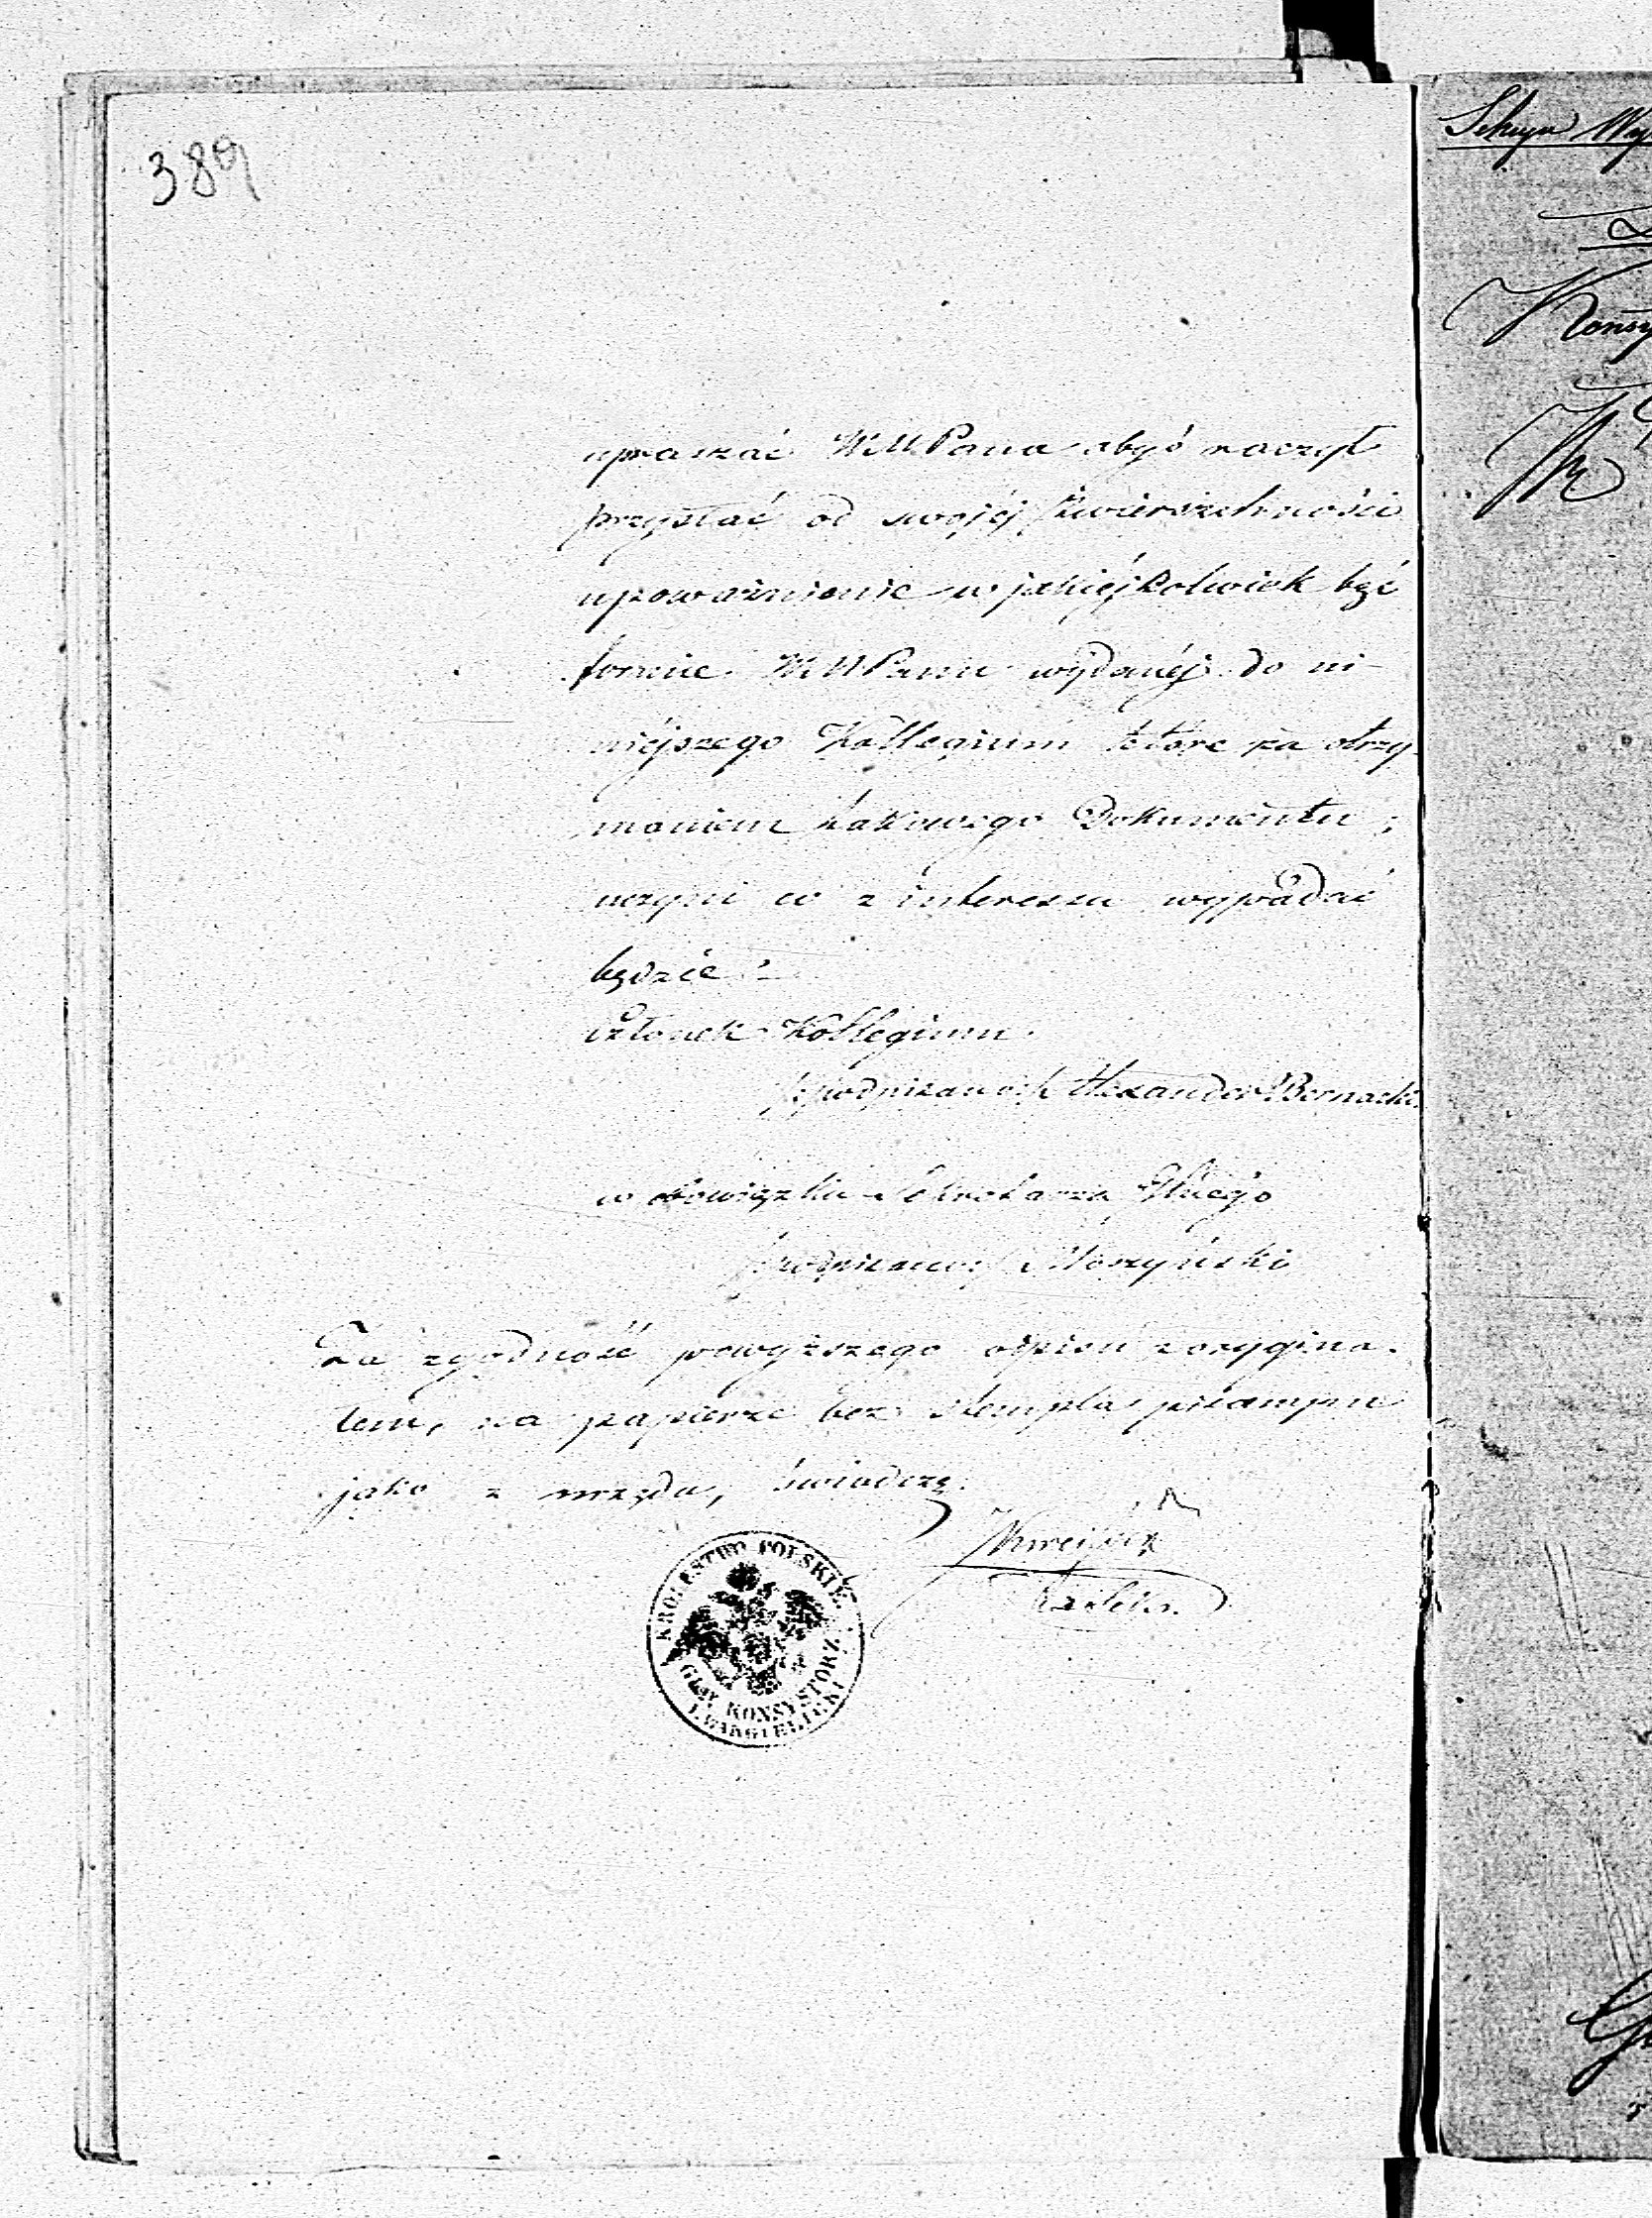 389
upraszać WMPana abyś raczył
przysłać od swojéj Zwierzchności
upoważnienie w jakiéjkolwiek być
formie WMPanu wydanéj do ni-
niéjszego Kollegium które za otrzy-
maniem takowego Dokumentu;
uczyni co z interessu wypadać
będzie.
Członek Kollegium.
/podpisano/ Alexander Bernacki.
w obowiązku Sekretarza Głnego
/podpisano/
Za zgodność powyższego odpisu z orygina-
łem, na papierze bez stempla pisanym
jako z urzędu, świadczę.
KROLESTWO POLSKIE
GŁÓY KONSYSTORZ
EWANGIELICKI
Sekcya